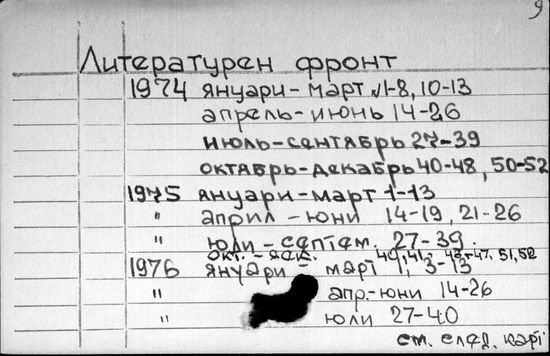 9
Литературен фронт
1974 януари – март №1-8, 10-13
апрель – июнь 14-26
июль – сентябрь 27-39
октябрь – декабрь 40-48, 50-52
1975 януари – март 1-13
" април – юни 14-19, 21-26
" юли – септем. 27-39
окт. – дек. 40, 41, 43-47, 51, 52
1976 януари – март 1, 3-13
" апр.-юни 14-26
" юли 27-40
см. след. карт